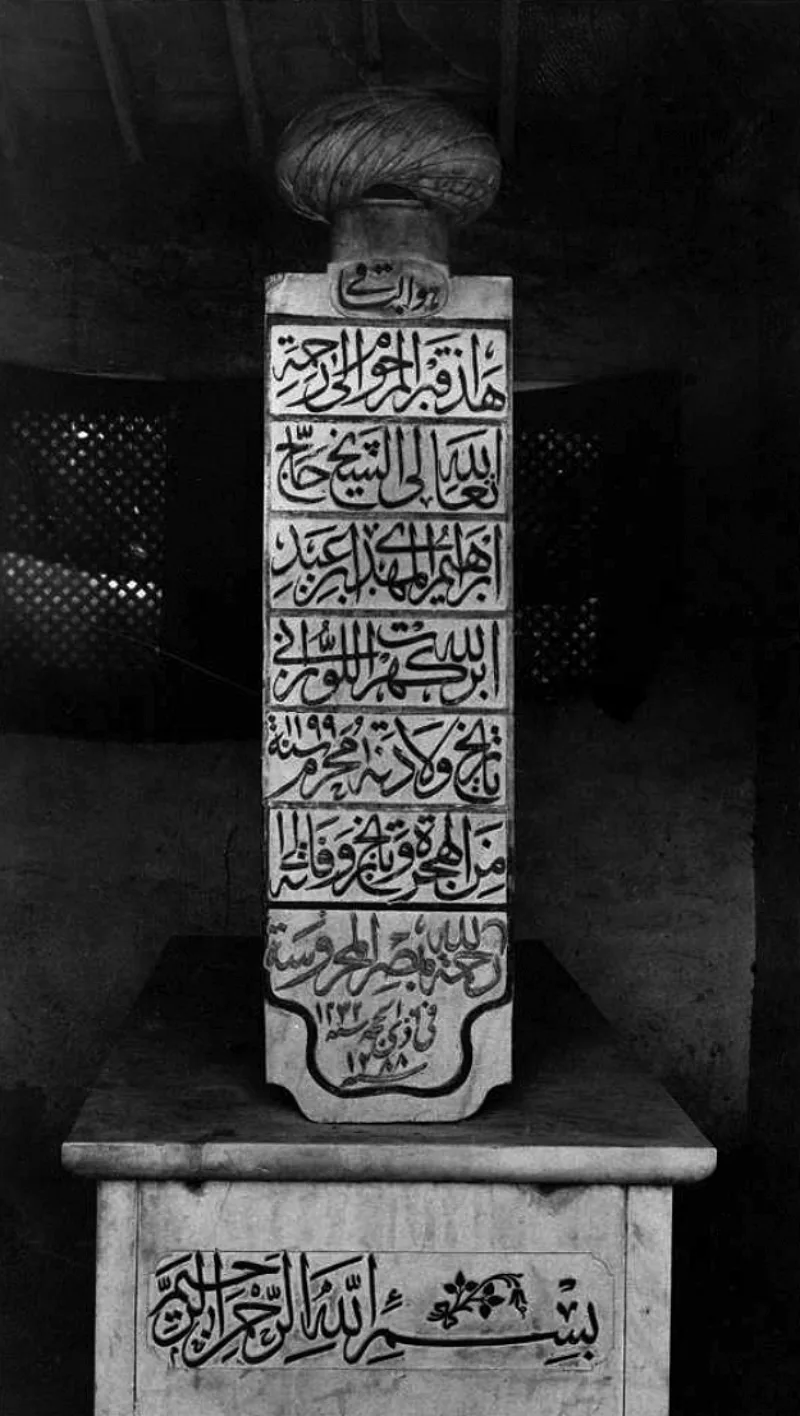 هو الباقي
هاذ قبر المرحوم الى رحمة
الله تعالى الشيخ حاج
ابراهيم المهدي ابن عبد
الله ابن بركهرت اللوزاني
تاريخ ولادته ١ محرم سنة ١١٩٩
من الهجرة وتاريخ وفاته الى
رحمة الله بمصر المحروسة
في ٩ ذي الحجه سنه ١٢٣٢
سنه ١٢٨٨
بسم الله الرحمن الرحيم